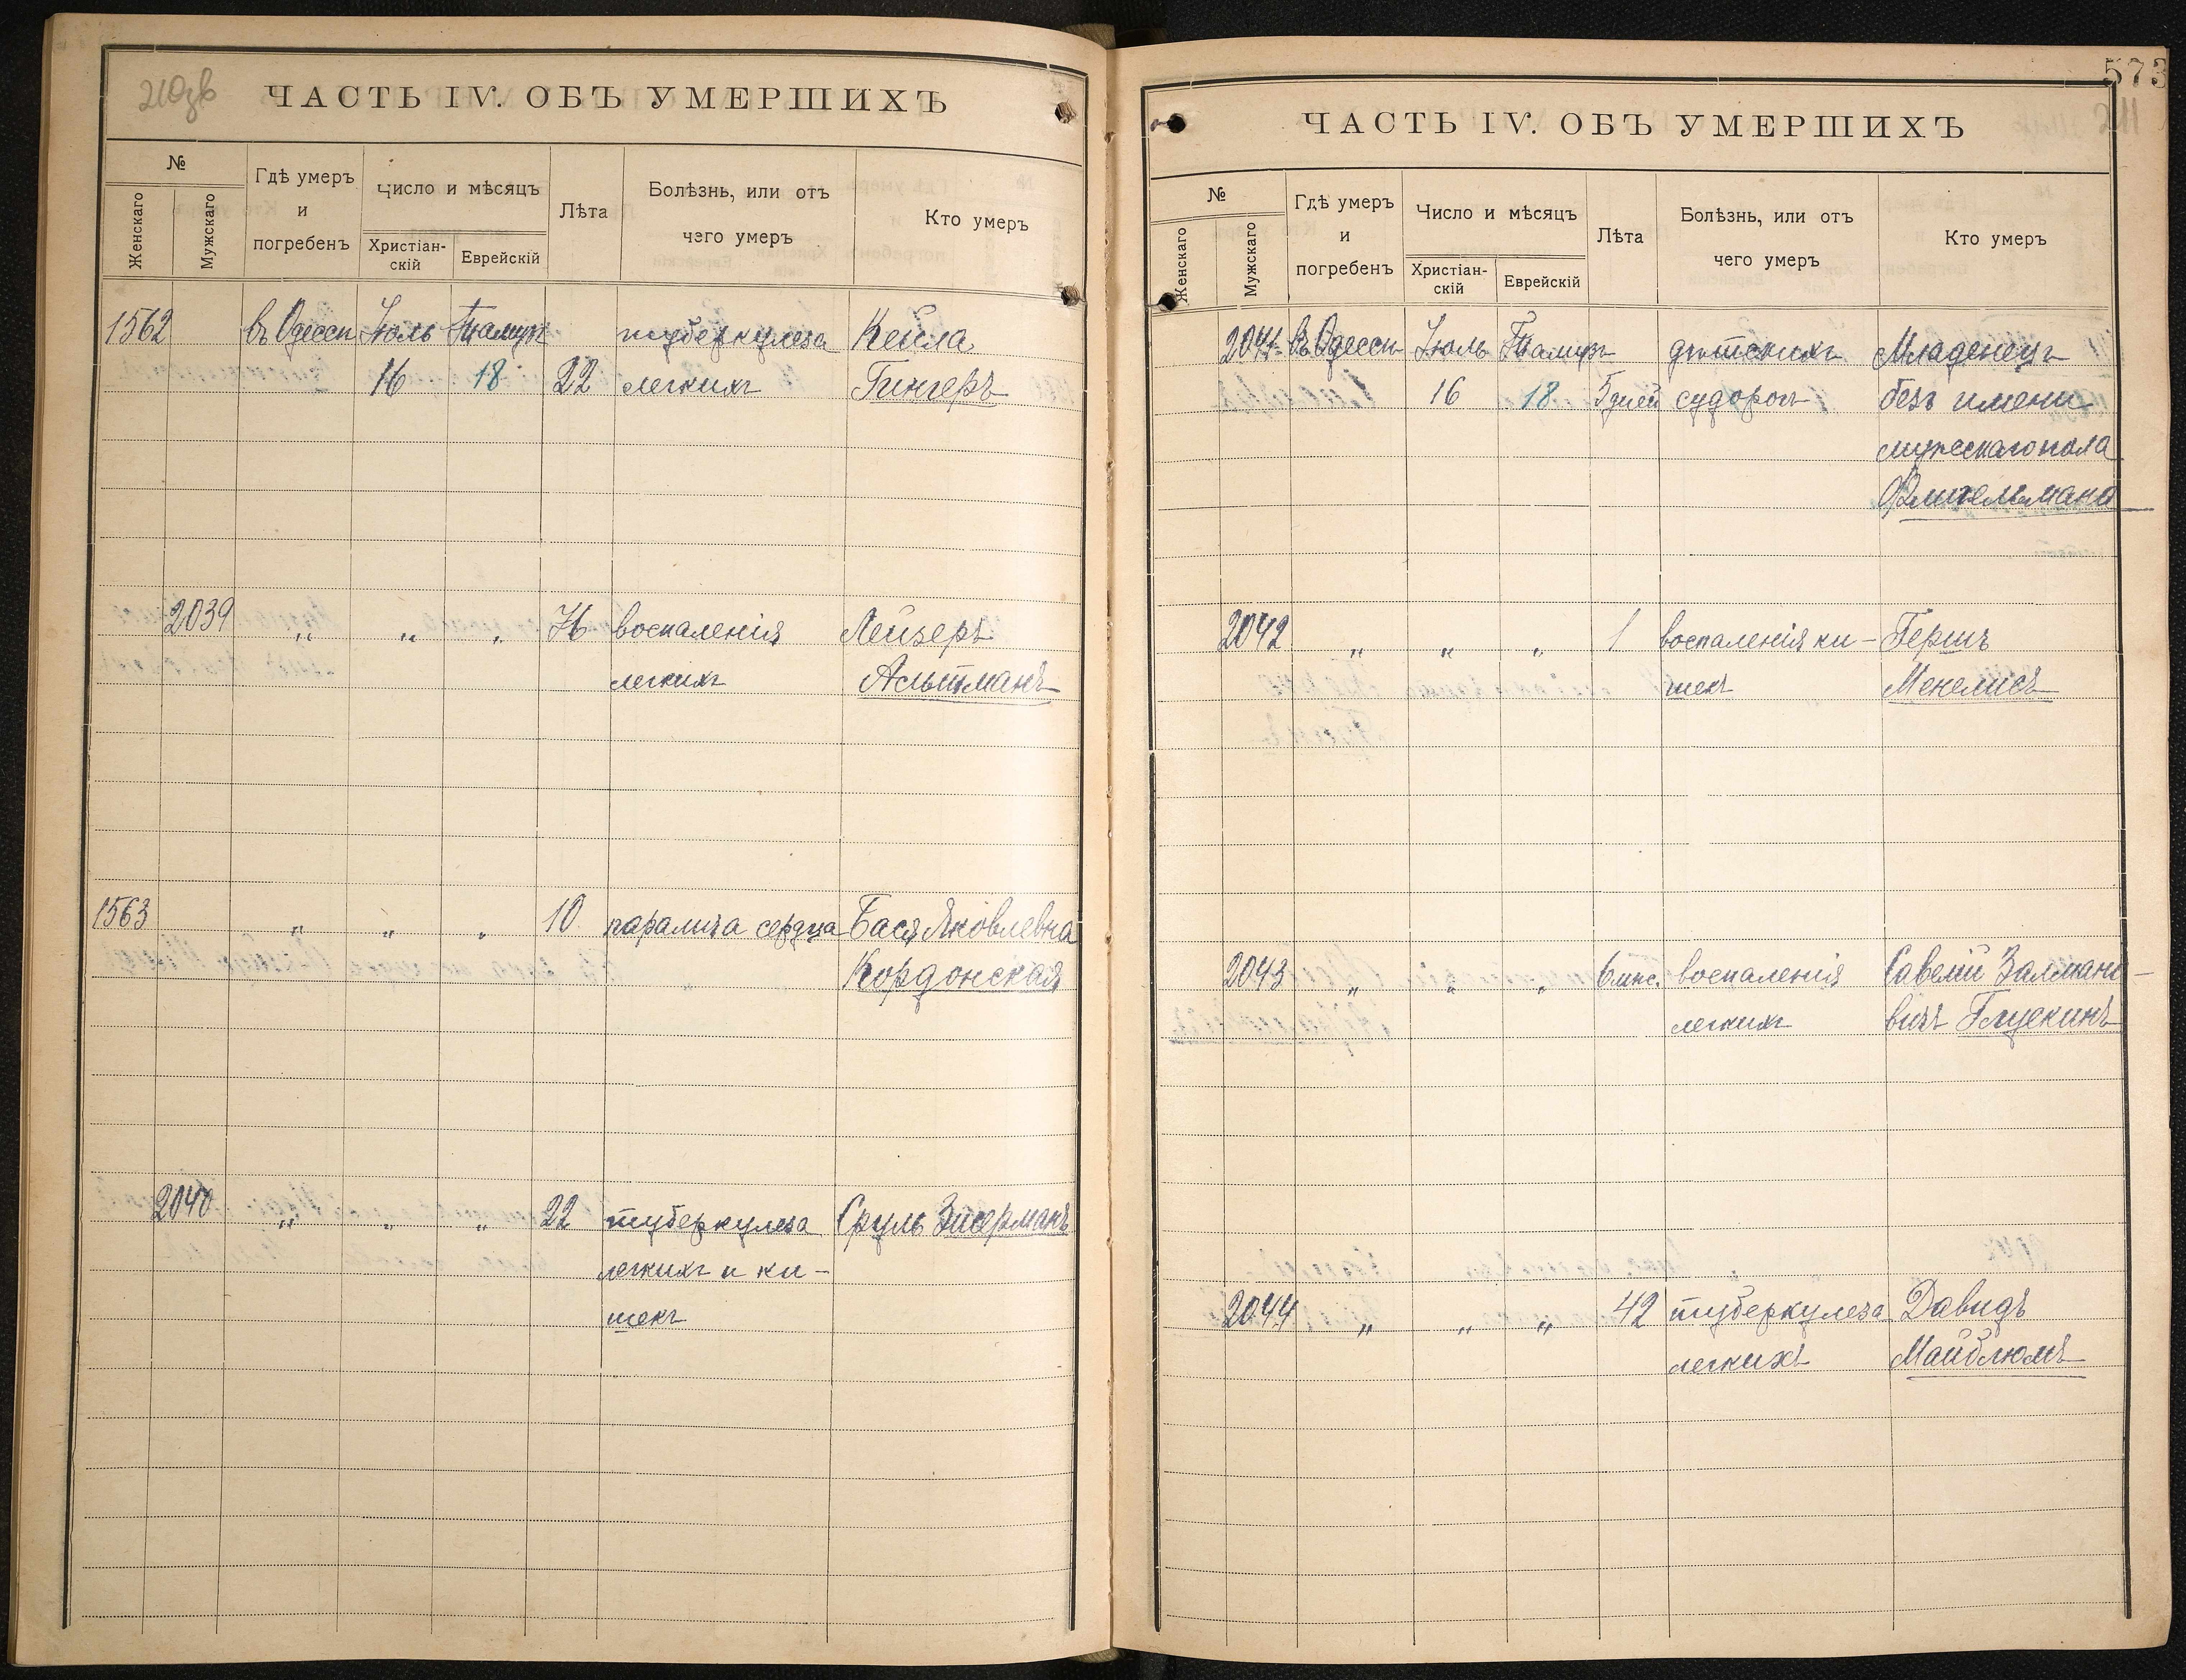 ЧАСТЬ IV. ОБЪ УМЕРШИХЪ
№
Женскаго
Мужскаго
Гдѣ умеръ
и
погребенъ
Число и мѣсяцъ
Христіан-
скій
Еврейскій
Лѣта
Болѣзнь, или отъ
чего умеръ
Кто умеръ
1562 въ Одессѣ Іюль Тамуз туберкулеза Кейла
16 18 22 легкихъ Гингеръ
2039 „ „ „ 76 воспаленія Лейзеръ
легкихъ Альтманъ
1563 „ „ „ 10 паралича сердца Бася Яковлевна
Кордонская
2040 „ „ „ 22 туберкулеза Сруль Зисерманъ
легкихъ и ки-
шекъ
573
211
ЧАСТЬ IV. ОБЪ УМЕРШИХЪ
№
Женскаго
Мужскаго
Гдѣ умеръ
и
погребенъ
Число и мѣсяцъ
Христіан-
скій
Еврейскій
Лѣта
Болѣзнь, или отъ
чего умеръ
Кто умеръ
2041 въ Одессѣ Іюль Тамуз дѣтскихъ Младенецъ
16 18 5 дней судорог безъ имени
мужескаго пола
Флигельмана
2042 „ „ „ 1 воспаленія ки- Гершъ
шекъ Менелисъ
2043 „ „ „ 6 мѣс. воспаленія Савелій Залмано-
легкихъ вичъ Глускинъ
2044 „ „ „ 42 туберкулеза Давидъ
легкихъ Майблюмъ